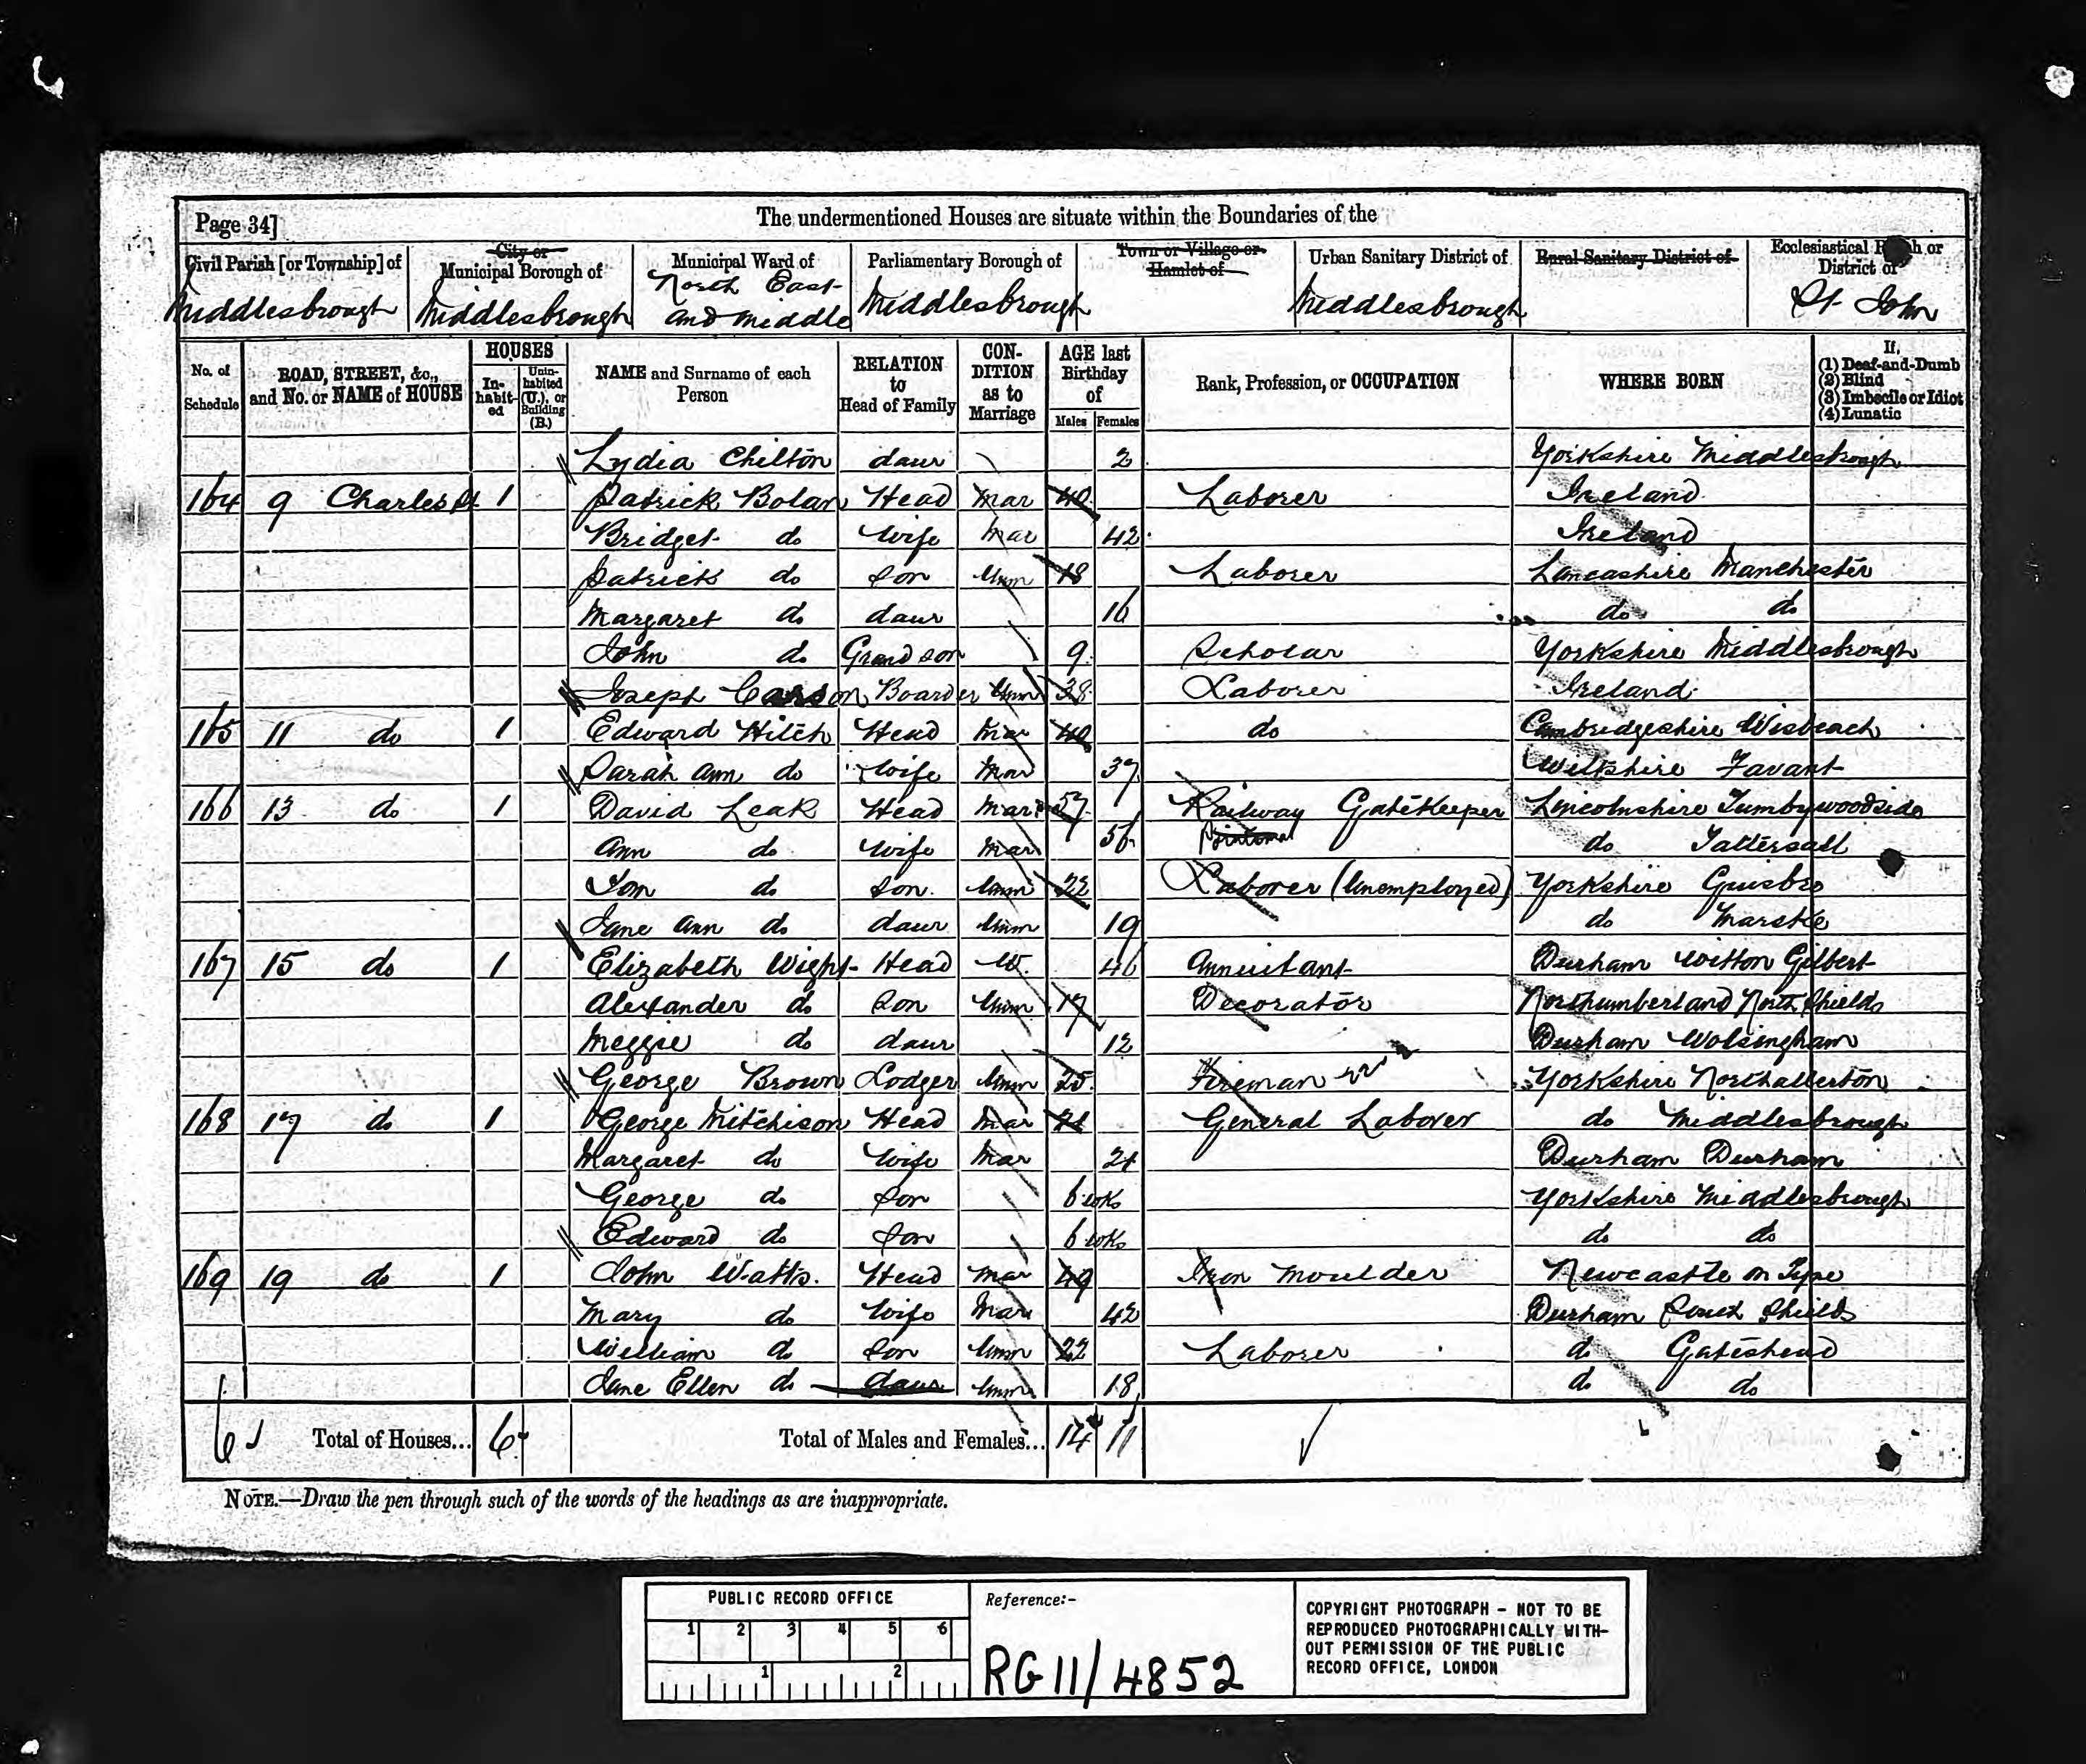 Page 34]
The undermentioned Houses are situate within the Boundaries of the
Civil Parish [or Township] of Middlesbrough
City or Municipal Borough of Middlesbrough
Municipal Ward of North East and Middle
Parliamentary Borough of Middlesbrough
Town or Village or Hamlet of
Urban Sanitary District of Middlesbrough
Rural Sanitary District of
Ecclesiastical or District of St. John
No. of Schedule
ROAD, STREET, &c., and No. or NAME of HOUSE
HOUSES
In-habit-ed
Unin-habited (U.), or Building (B.)
NAME and Surname of each Person
RELATION to Head of Family
CON-DITION as to Marriage
AGE last Birthday of
Males Females
Rank, Profession, or OCCUPATION
WHERE BORN
If, (1) Deaf-and-Dumb (2) Blind (3) Imbecile or Idiot (4) Lunatic
Lydia Chilton daur 2 Yorkshire Middlesbrough
164 9 Charles St 1 Patrick Bolan Head Mar 40 Laborer Ireland
Bridget do Wife Mar 42 Ireland
Patrick do Son Unm 18 Laborer Lancashire Manchester
Margaret do daur 16 do do
John do Grand son 9 Scholar Yorkshire Middlesbrough
Joseph Carson Boarder Unm 38 Laborer Ireland
165 11 do 1 Edward Hitch Head Mar 40 do Cambridgeshire Wisbeach
Sarah Ann do Wife Mar 37 Wiltshire Favant
166 13 do 1 David Leak Head Mar 57 Railway Gatekeeper Lincolnshire Tumbywoodside
Ann do Wife Mar 56 do Tattersall
Tom do Son Unm 22 Laborer (Unemployed) Yorkshire Guisbro
Jane Ann do daur Unm 19 do Marske
167 15 do 1 Elizabeth Wight Head W. 46 Annuitant Durham Witton Gilbert
Alexander do Son Unm 17 Decorator Northumberland North Shields
Meggie do daur 12 Durham Wolsingham
George Brown Lodger Unm 25 Fireman Yorkshire Northallerton
168 17 do 1 George Mitchison Head Mar 21 General Laborer do Middlesbrough
Margaret do Wife Mar 21 Durham Durham
George do Son 6 wks Yorkshire Middlesbrough
Edward do Son 6 wks do do
169 19 do 1 John Watts. Head Mar 49 Iron Moulder Newcastle on Tyne
Mary do Wife Mar 42 Durham South Shields
William do Son Unm 22 Laborer do Gateshead
Jane Ellen do daur Unm 18 do do
6 Total of Houses... 6 Total of Males and Females... 14 11
NOTE.—Draw the pen through such of the words of the headings as are inappropriate.
PUBLIC RECORD OFFICE
1 2 3 4 5 6
1 2
Reference:-
RG 11/4852
COPYRIGHT PHOTOGRAPH - NOT TO BE
REPRODUCED PHOTOGRAPHICALLY WITH-
OUT PERMISSION OF THE PUBLIC
RECORD OFFICE, LONDON